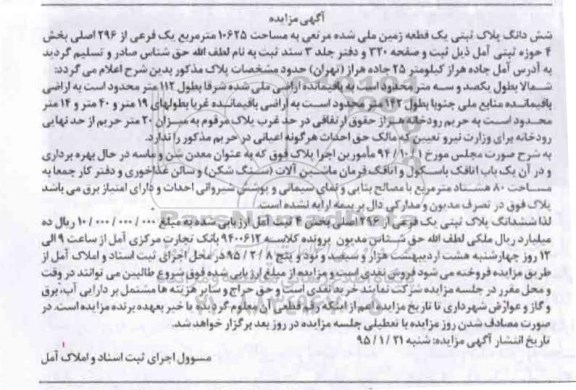 آگهی مزایده
شش دانگ پلاک ثبتی یک قطعه زمین ملی شده مرتعی به مساحت ۱۰۶۲۵ مترمربع یک فرعی از ۲۹۶ اصلی بخش
۴ حوزه ثبتی آمل ذیل ثبت و صفحه ۳۲۰ و دفتر جلد ۳ سند ثبت به نام لطف الله حق شناس صادر و تسلیم گردید
به آدرس آمل جاده هراز کیلومتر ۲۵ جاده هراز (تهران) حدود مشخصات پلاک مذکور بدین شرح اعلام می گردد:
شمالا بطول یکصد و سه متر محدود است به باقیمانده اراضی ملی شده شرقا بطول ۱۱۲ متر محدود است به اراضی
باقیمانده منابع ملی جنوبا بطول ۱۴۲ متر محدود است به اراضی باقیمانده غربا بطولهای ۱۹ متر و ۴۰ متر و ۱۴ متر
محدود است به حریم رودخانه هراز حقوق ارتفاقی در حد غرب پلاک مرقوم به میزان ۲۰ متر حریم از حد نهایی
رودخانه برای وزارت نیرو تعیین که مالک حق احداث هرگونه اعیانی در حریم مذکور را ندارد.
به شرح صورت مجلس مورخ ۹۴/۱۰/۱ مأمورین اجرا پلاک فوق که به عنوان معدن شن و ماسه در حال بهره برداری
و در آن یک باب اتاقک باسکول و اتاقک فرمان ماشین آلات (سنگ شکن) و سالن غذاخوری و دفتر کار جمعا به
مساحت ۸۰ هشتاد مترمربع با مصالح بنایی و نمای سیمانی و پوشش شیروانی احداث و دارای امتیاز برق می باشد
پلاک فوق در تصرف مدیون و مدارکی دال بر بیمه ارایه نشده است.
لذا ششدانگ پلاک ثبتی یک فرعی از ۲۹۶ اصلی بخش ۴ ثبت آمل ارزیابی شده به مبلغ ۱۰/۰۰۰/۰۰۰/۰۰۰ ریال ده
میلیارد ریال ملکی لطف الله حق شناس مدیون پرونده کلاسه ۹۴۰۰۶۱۲ بانک تجارت مرکزی آمل از ساعت ۹ الی
۱۲ روز چهارشنبه هشت اردیبهشت هزار و سیصد و نود و پنج ۹۵/۲/۸ در محل اجرای ثبت اسناد و املاک آمل از
طریق مزایده فروخته می شود فروش نقدی است و مزایده از مبلغ ارزیابی شده فوق شروع طالبین می توانند در وقت
و محل مقرر در جلسه مزایده شرکت نمایند خرید نقدی است و حق حراج و سایر هزینه ها مشتمل بر دارایی آب، برق
و گاز و عوارض شهرداری تا تاریخ مزایده اعم از اینکه رقم قطعی آن معلوم گردید یا خیر بعهده برنده مزایده است. در
صورت مصادف شدن روز مزایده با تعطیلی جلسه مزایده در روز بعد برگزار خواهد شد.
تاریخ انتشار آگهی مزایده: شنبه ۹۵/۱/۲۱
مسوول اجرای ثبت اسناد و املاک آمل